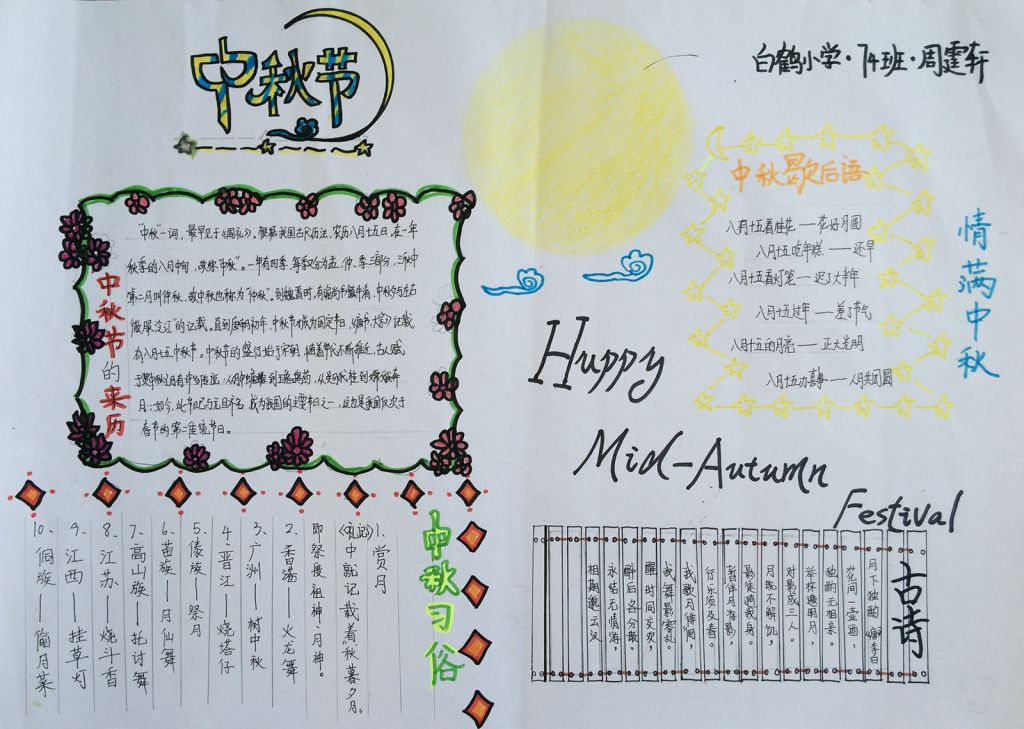 中秋节
白鹤小学·74班·周霆轩
中秋节的来历
"中秋"一词，最早见于《周礼》。根据我国古代历法，农历八月十五日，在一年
秋季的八月中旬，故称"中秋"。一年有四季，每季又分为孟、仲、季三部分，三秋中
第二月叫仲秋，故中秋也称为"仲秋"。到魏晋时，有
微服泛江"的记载。直到唐朝初年，中秋节才成为固定节日。《唐书·太宗》记载
有八月十五中秋节。中秋节的盛行始于宋朝
月
春节的第二传统节日。
中秋歇后语
八月十五看桂花——花好月圆
八月十五吃年糕——还早
八月十五看灯笼——迟了大半年
八月十五过年——差了节气
八月十五的月亮——正大光明
八月十五办喜事——人月共团圆
情满中秋
Huppy
Mid-Autumn
Festival
中秋习俗
1、赏月
《礼记》中就记载着"秋暮夕月"
即祭拜祖神、月神。
2、香港——火龙舞
3、广州——树中秋
4、晋江——烧塔仔
5、傣族——祭月
6、苗族——月仙舞
7、高山族——托讨舞
8、江苏——烧斗香
9、江西——挂草灯
10、侗族——偷月菜
古诗
月下独酌 唐李白
花间一壶酒，
独酌无相亲。
举杯邀明月，
对影成三人。
月既不解饮，
影徒随我身。
暂伴月将影，
行乐须及春。
我歌月徘徊，
我舞影零乱。
醒时同交欢，
醉后各分散。
永结无情游，
相期邈云汉